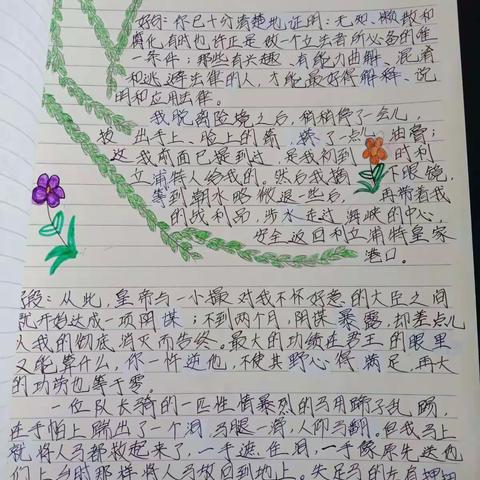 好词: 你已十分清楚地证明: 无知、懒散和
腐化有时也许正是做一个立法者所必备的唯
一条件; 那些有兴趣、有能力曲解、混淆
和逃避法律的人, 才能最好得解释、说
明和应用法律。
我脱离险境之后, 稍稍停了一会儿,
拔出手上、脸上的箭, 搽了一点儿油膏;
这我前面已提到过, 是我初到的利
立浦特人给我的。然后我摘下眼镜,
等到潮水略微退些后, 再带着我
的战利品, 涉水走过海峡的中心,
安全返回利立浦特皇家
港口。
段: 从此, 皇帝与一小撮对我不怀好意的大臣之间
就开始达成一项阴谋; 不到两个月, 阴谋暴露, 却差点儿
以我的彻底消灭而告终。最大的功绩在君王的眼里
又能算什么, 你一忤逆他, 不使其野心得满足, 再大
的功劳也等于零。
一位队长骑的一匹性情暴烈的马用蹄子乱踢,
在手帕上踹出了一个洞, 马腿一滑, 人仰马翻。但我马上
就将人马都救起来了, 一手遮住洞, 一手像原先送他
们上台时那样将人马放回到地上。失足马的左前